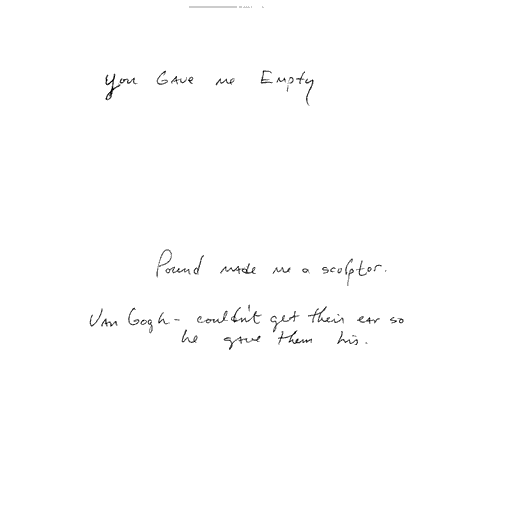 You Gave me Empty
Pound made me a sculptor.
Van Gogh - couldn't get their ear so
he gave them his.